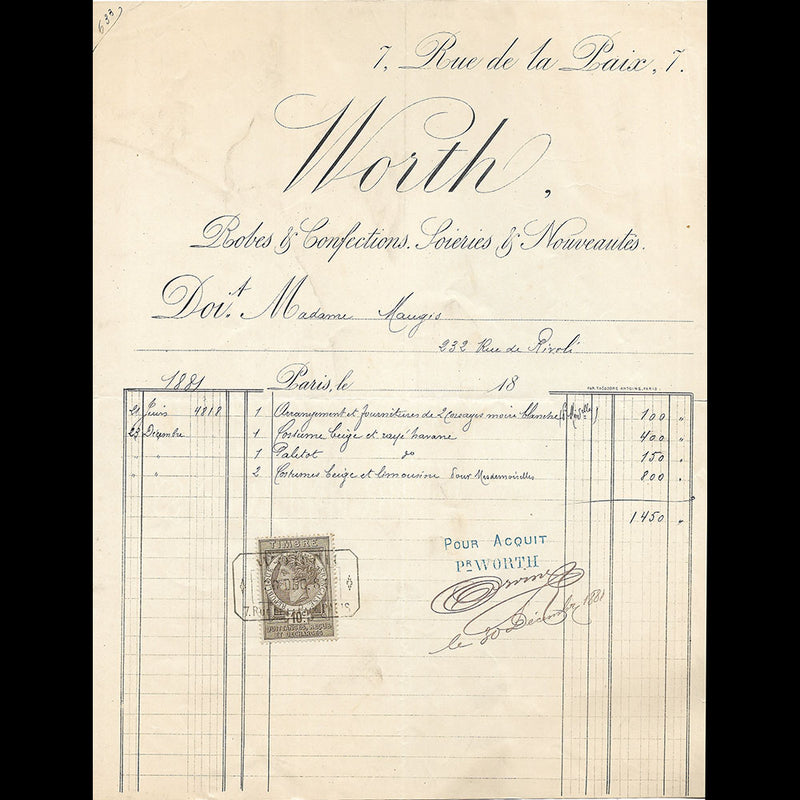 633
7, Rue de la Paix, 7.
Worth,
Robes & Confections. Soieries, & Nouveautés.
Doi.t Madame Maugis
232 Rue de Rivoli
1881 Paris, le 18
PAR THÉODORE ANTOINE, PARIS.
21 Juin 4818 1 Arrangement et fournitures de 2 Corsages moire blanche 100 "
23 Décembre 1 Costume beige et rayé havane 400 "
" " 1 Paletot do 150 "
" " 2 Costumes beige et limousine Pour Mesdemoiselles 800 "
1450 "
TIMBRE
WORTH
7. Rue PARIS
10c
QUITTANCES, REÇUS
ET DÉCHARGES
POUR ACQUIT
PR WORTH
le 30 Décembre 1881